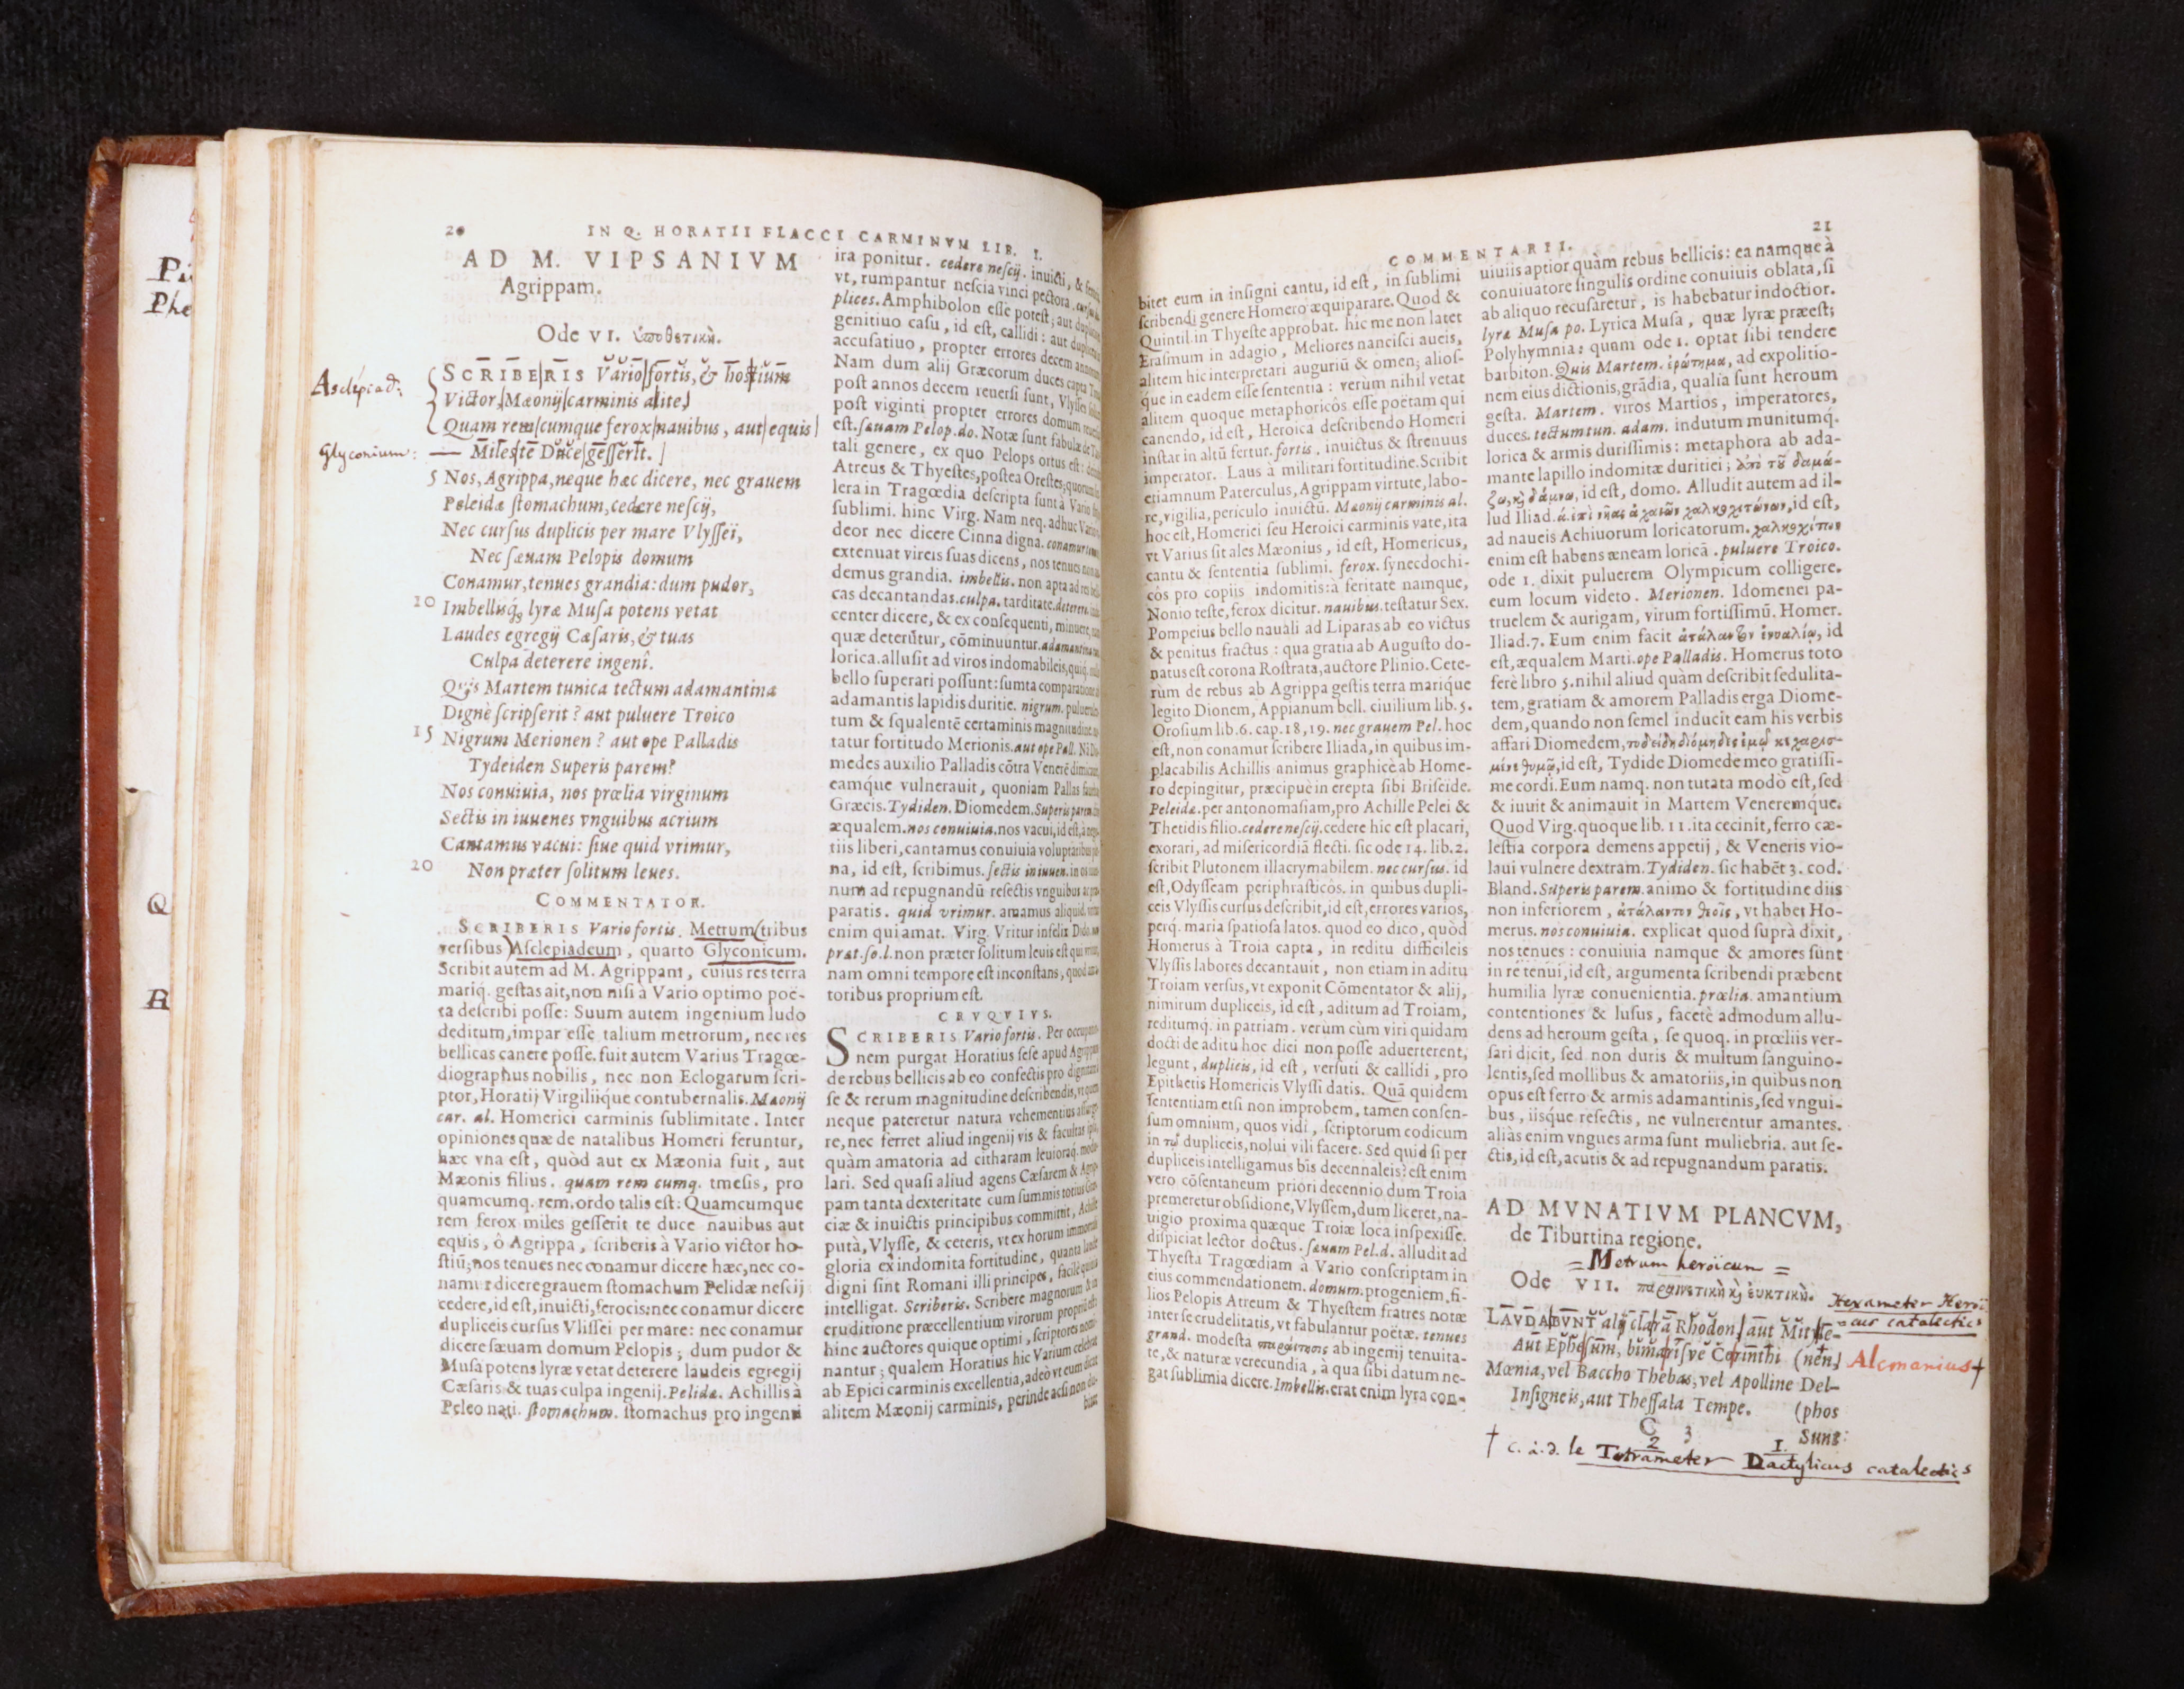 Pi
Phe
Q
R
20 IN Q. HORATII FLACCI CARMINVM LIB. I.
AD M. VIPSANIVM
Agrippam.
Ode VI. ὑποθετικὴ.
Asclepiad:
SCRIBERIS Vario fortis, & hostium
Victor, Mæonij carminis alite,
Quam rem cumque ferox nauibus, aut equis
Glyconium:
Miles te Duce gesserit.
5 Nos, Agrippa, neque hæc dicere, nec grauem
Peleidæ stomachum, cedere nescij,
Nec cursus duplicis per mare Vlysseï,
Nec sæuam Pelopis domum
Conamur, tenues grandia: dum pudor,
10 Imbellisq́; lyræ Musa potens vetat
Laudes egregij Cæsaris, & tuas
Culpa deterere ingenî.
Quis Martem tunica tectum adamantina
Dignè scripserit? aut puluere Troico
15 Nigrum Merionen? aut ope Palladis
Tydeiden Superis parem?
Nos conuiuia, nos prœlia virginum
Sectis in iuuenes vnguibus acrium
Cantamus vacui: siue quid vrimur,
20 Non præter solitum leues.
COMMENTATOR.
SCRIBERIS Vario fortis. Metrum (tribus
versibus) Asclepiadeum, quarto Glyconicum.
Scribit autem ad M. Agrippam, cuius res terra
mariq́. gestas ait, non nisi à Vario optimo poë-
ta describi posse: Suum autem ingenium ludo
deditum, impar esse talium metrorum, nec res
bellicas canere posse. fuit autem Varius Tragœ-
diographus nobilis, nec non Eclogarum scri-
ptor, Horatij Virgiliique contubernalis. Mæonij
car. al. Homerici carminis sublimitate. Inter
opiniones quæ de natalibus Homeri feruntur,
hæc vna est, quòd aut ex Mæonia fuit, aut
Mæonis filius. quam rem cumq. tmesis, pro
quamcumq. rem. ordo talis est: Quamcumque
rem ferox miles gesserit te duce nauibus aut
equis, ô Agrippa, scriberis à Vario victor ho-
stiū; nos tenues nec conamur dicere hæc, nec co-
namur dicere grauem stomachum Pelidæ nescij
cedere, id est, inuicti, ferocis: nec conamur dicere
dupliceis cursus Vlissei per mare: nec conamur
dicere sæuam domum Pelopis; dum pudor &
Musa potens lyræ vetat deterere laudeis egregij
Cæsaris & tuas culpa ingenij. Pelidæ. Achillis à
Peleo nati. stomachum. stomachus pro ingenti
ira ponitur. cedere nescij. inuicti, &
vt, rumpantur nescia vinci pectora.
plices. Amphibolon esse potest; aut
genitiuo casu, id est, callidi: aut
accusatiuo, propter errores decem annorum
Nam dum alij Græcorum duces capta
post annos decem reuersi sunt, Vlysses
post viginti propter errores domum
est. sæuam Pelop. do. Notæ sunt fabulæ de
tali genere, ex quo Pelops ortus est:
Atreus & Thyestes, postea Orestes;
lera in Tragœdia descripta sunt à Vario
sublimi. hinc Virg. Nam neq. adhuc Vario
deor nec dicere Cinna digna. conamur
extenuat vireis suas dicens, nos tenues
demus grandia. imbellis. non apta ad res
cas decantandas. culpa. tarditate. deterere.
center dicere, & ex consequenti, minuere,
quæ deterūtur, cōminuuntur. adamantina
lorica. allusit ad viros indomabileis,
bello superari possunt: sumta comparatione
adamantis lapidis duritie. nigrum.
tum & squalentē certaminis magnitudine.
tatur fortitudo Merionis. aut ope Pall.
medes auxilio Palladis cōtra Venerē
eamque vulnerauit, quoniam Pallas
Græcis. Tydiden. Diomedem. Superis parem
æqualem. nos conuiuia. nos vacui, id est, à
tiis liberi, cantamus conuiuia
na, id est, scribimus. sectis in iuuen. in
num ad repugnandū resectis vnguibus
paratis. quid vrimur. amamus aliquid.
enim qui amat. Virg. Vritur infelix Dido.
præt. so. l. non præter solitum leuis est qui
nam omni tempore est inconstans,
toribus proprium est.
CRVQVIVS.
SCRIBERIS Vario fortis. Per
nem purgat Horatius sese apud Agrippam
de rebus bellicis ab eo confectis pro dignitate
se & rerum magnitudine describendis,
neque pateretur natura vehementius
re, nec ferret aliud ingenij vis & facultas
quàm amatoria ad citharam leuioraq.
lari. Sed quasi aliud agens Cæsarem & Agrip-
pam tanta dexteritate cum summis totius Græ-
ciæ & inuictis principibus committit, Achille
putà, Vlysse, & ceteris, vt ex horum immortali
gloria ex indomita fortitudine, quanta laude
digni sint Romani illi principes, facilè quiuis
intelligat. Scriberis. Scribere magnorum & in
eruditione præcellentium virorum propriè est:
hinc auctores quique optimi, scriptores nomi-
nantur; qualem Horatius hic Varium celebrat
ab Epici carminis excellentia, adeò vt eum dicat
alitem Mæonij carminis, perinde acsi non du-
bitet
COMMENTARII. 21
bitet eum in insigni cantu, id est, in sublimi
scribendi genere Homero æquiparare. Quod &
Quintil. in Thyeste approbat. hic me non latet
Erasmum in adagio, Meliores nancisci aueis,
alitem hic interpretari auguriū & omen; alios-
que in eadem esse sententia: verùm nihil vetat
alitem quoque metaphoricôs esse poëtam qui
canendo, id est, Heroica describendo Homeri
instar in altū fertur. fortis. inuictus & strenuus
imperator. Laus à militari fortitudine. Scribit
etiamnum Paterculus, Agrippam virtute, labo-
re, vigilia, periculo inuictū. Mæonij carminis al.
hoc est, Homerici seu Heroici carminis vate, ita
vt Varius sit ales Mæonius, id est, Homericus,
cantu & sententia sublimi. ferox. synecdochi-
côs pro copiis indomitis: à feritate namque,
Nonio teste, ferox dicitur. nauibus. testatur Sex.
Pompeius bello nauali ad Liparas ab eo victus
& penitus fractus: qua gratia ab Augusto do-
natus est corona Rostrata, auctore Plinio. Cete-
rùm de rebus ab Agrippa gestis terra marique
legito Dionem, Appianum bell. ciuilium lib. 5.
Orosium lib. 6. cap. 18, 19. nec grauem Pel. hoc
est, non conamur scribere Iliada, in quibus im-
placabilis Achillis animus graphicè ab Home-
ro depingitur, præcipuè in erepta sibi Briseïde.
Peleidæ. per antonomasiam, pro Achille Pelei &
Thetidis filio. cedere nescij. cedere hic est placari,
exorari, ad misericordiā flecti. sic ode 14. lib. 2.
scribit Plutonem illacrymabilem. nec cursus. id
est, Odysseam periphrasticôs. in quibus dupli-
ceis Vlyssis cursus describit, id est, errores varios,
perq́. maria spatiosa latos. quod eo dico, quòd
Homerus à Troia capta, in reditu difficileis
Vlyssis labores decantauit, non etiam in aditu
Troiam versus, vt exponit Cōmentator & alij,
nimirum dupliceis, id est, aditum ad Troiam,
reditumq́. in patriam. verùm cùm viri quidam
docti de aditu hoc dici non posse aduerterent,
legunt, duplicis, id est, versuti & callidi, pro
Epithetis Homericis Vlyssi datis. Quā quidem
sententiam etsi non improbem, tamen consen-
sum omnium, quos vidi, scriptorum codicum
in τῷ dupliceis, nolui vili facere. Sed quid si per
dupliceis intelligamus bis decennaleis? est enim
vero cōsentaneum priori decennio dum Troia
premeretur obsidione, Vlyssem, dum liceret, na-
uigio proxima quæque Troiæ loca inspexisse.
dispiciat lector doctus. sæuam Pel. d. alludit ad
Thyesta Tragœdiam à Vario conscriptam in
eius commendationem. domum. progeniem, fi-
lios Pelopis Atreum & Thyestem fratres notæ
inter se crudelitatis, vt fabulantur poëtæ. tenues
grand. modesta ab ingenij tenuita-
te, & naturæ verecundia, à qua sibi datum ne-
gat sublimia dicere. Imbellis. erat enim lyra con-
uiuiis aptior quàm rebus bellicis: ea namque à
conuiuatore singulis ordine conuiuis oblata, si
ab aliquo recusaretur, is habebatur indoctior.
lyræ Musa po. Lyrica Musa, quæ lyræ præest;
Polyhymnia: quam ode 1. optat sibi tendere
barbiton. Quis Martem. ἐρώτημα, ad expolitio-
nem eius dictionis, grādia, qualia sunt heroum
gesta. Martem. viros Martios, imperatores,
duces. tectum tun. adam. indutum munitumq́.
lorica & armis durissimis: metaphora ab ada-
mante lapillo indomitæ duritiei; ἀπὸ τοῦ δαμά-
ζω, καὶ δάμνω, id est, domo. Alludit autem ad il-
lud Iliad. ά. ἐπὶ νῆας ἀχαιῶν χαλκοχιτώνων, id est,
ad naueis Achiuorum loricatorum. χαλκοχίτων
enim est habens æneam loricā. puluere Troico.
ode 1. dixit puluerem Olympicum colligere.
eum locum videto. Merionen. Idomenei pa-
truelem & aurigam, virum fortissimū. Homer.
Iliad. 7. Eum enim facit ἀτάλαντον ἐνυαλίῳ, id
est, æqualem Marti. ope Palladis. Homerus toto
ferè libro 5. nihil aliud quàm describit sedulita-
tem, gratiam & amorem Palladis erga Diome-
dem, quando non semel inducit eam his verbis
affari Diomedem, τυδείδη διόμηδες ἐμῷ κεχαρισ-
μένε θυμῷ, id est, Tydide Diomede meo gratissi-
me cordi. Eum namq. non tutata modò est, sed
& iuuit & animauit in Martem Veneremque.
Quod Virg. quoque lib. 11. ita cecinit, ferro cæ-
lestia corpora demens appetij, & Veneris vio-
laui vulnere dextram. Tydiden. sic habēt 3. cod.
Bland. Superis parem. animo & fortitudine diis
non inferiorem, ἀτάλαντον θεοῖς, vt habet Ho-
merus. nos conuiuia. explicat quod suprà dixit,
nos tenues: conuiuia namque & amores sunt
in re tenui, id est, argumenta scribendi præbent
humilia lyræ conuenientia. prœlia. amantium
contentiones & lusus, facetè admodum allu-
dens ad heroum gesta, se quoq. in prœliis ver-
sari dicit, sed non duris & multum sanguino-
lentis, sed mollibus & amatoriis, in quibus non
opus est ferro & armis adamantinis, sed vngui-
bus, iisque resectis, ne vulnerentur amantes.
aliàs enim vngues arma sunt muliebria. aut se-
ctis, id est, acutis & ad repugnandum paratis.
AD MVNATIVM PLANCVM,
de Tiburtina regione.
= Metrum heroïcum =
Ode VII. παραινετικὴ καὶ ἐυκτικὴ.
Hexameter Heroï
cus catalectics
LAVDABVNT alij claram Rhodon, aut Mityle-
Aut Ephesum, bimarisve Corinthi (nen,
Alcmanius †
Mœnia, vel Baccho Thebas, vel Apolline Del-
Insigneis, aut Thessala Tempe. (phos
C 3 Sunt
† c. à. d. le Tetrameter Dactylicus catalectics
2 1.